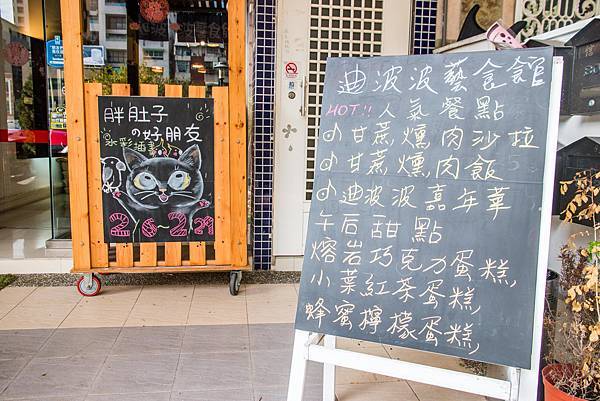 胖肚子
の好朋友
水彩插畫
2628
迪波波藝食館
HOT!! 人氣餐點
甘蔗燻肉沙拉
甘蔗燻肉飯
迪波波嘉年華
午后甜點
熔岩巧克力蛋糕
小葉紅茶蛋糕
蜂蜜檸檬蛋糕